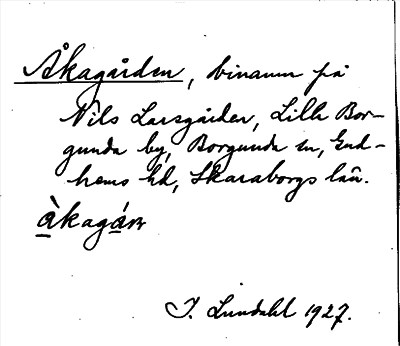 Åkagården, binamn på
Nils Larsgården, Lilla Bor-
gunda by, Borgunda sn, Gud-
hems hd, Skaraborgs län.
àkagán
J. Lundahl 1927.